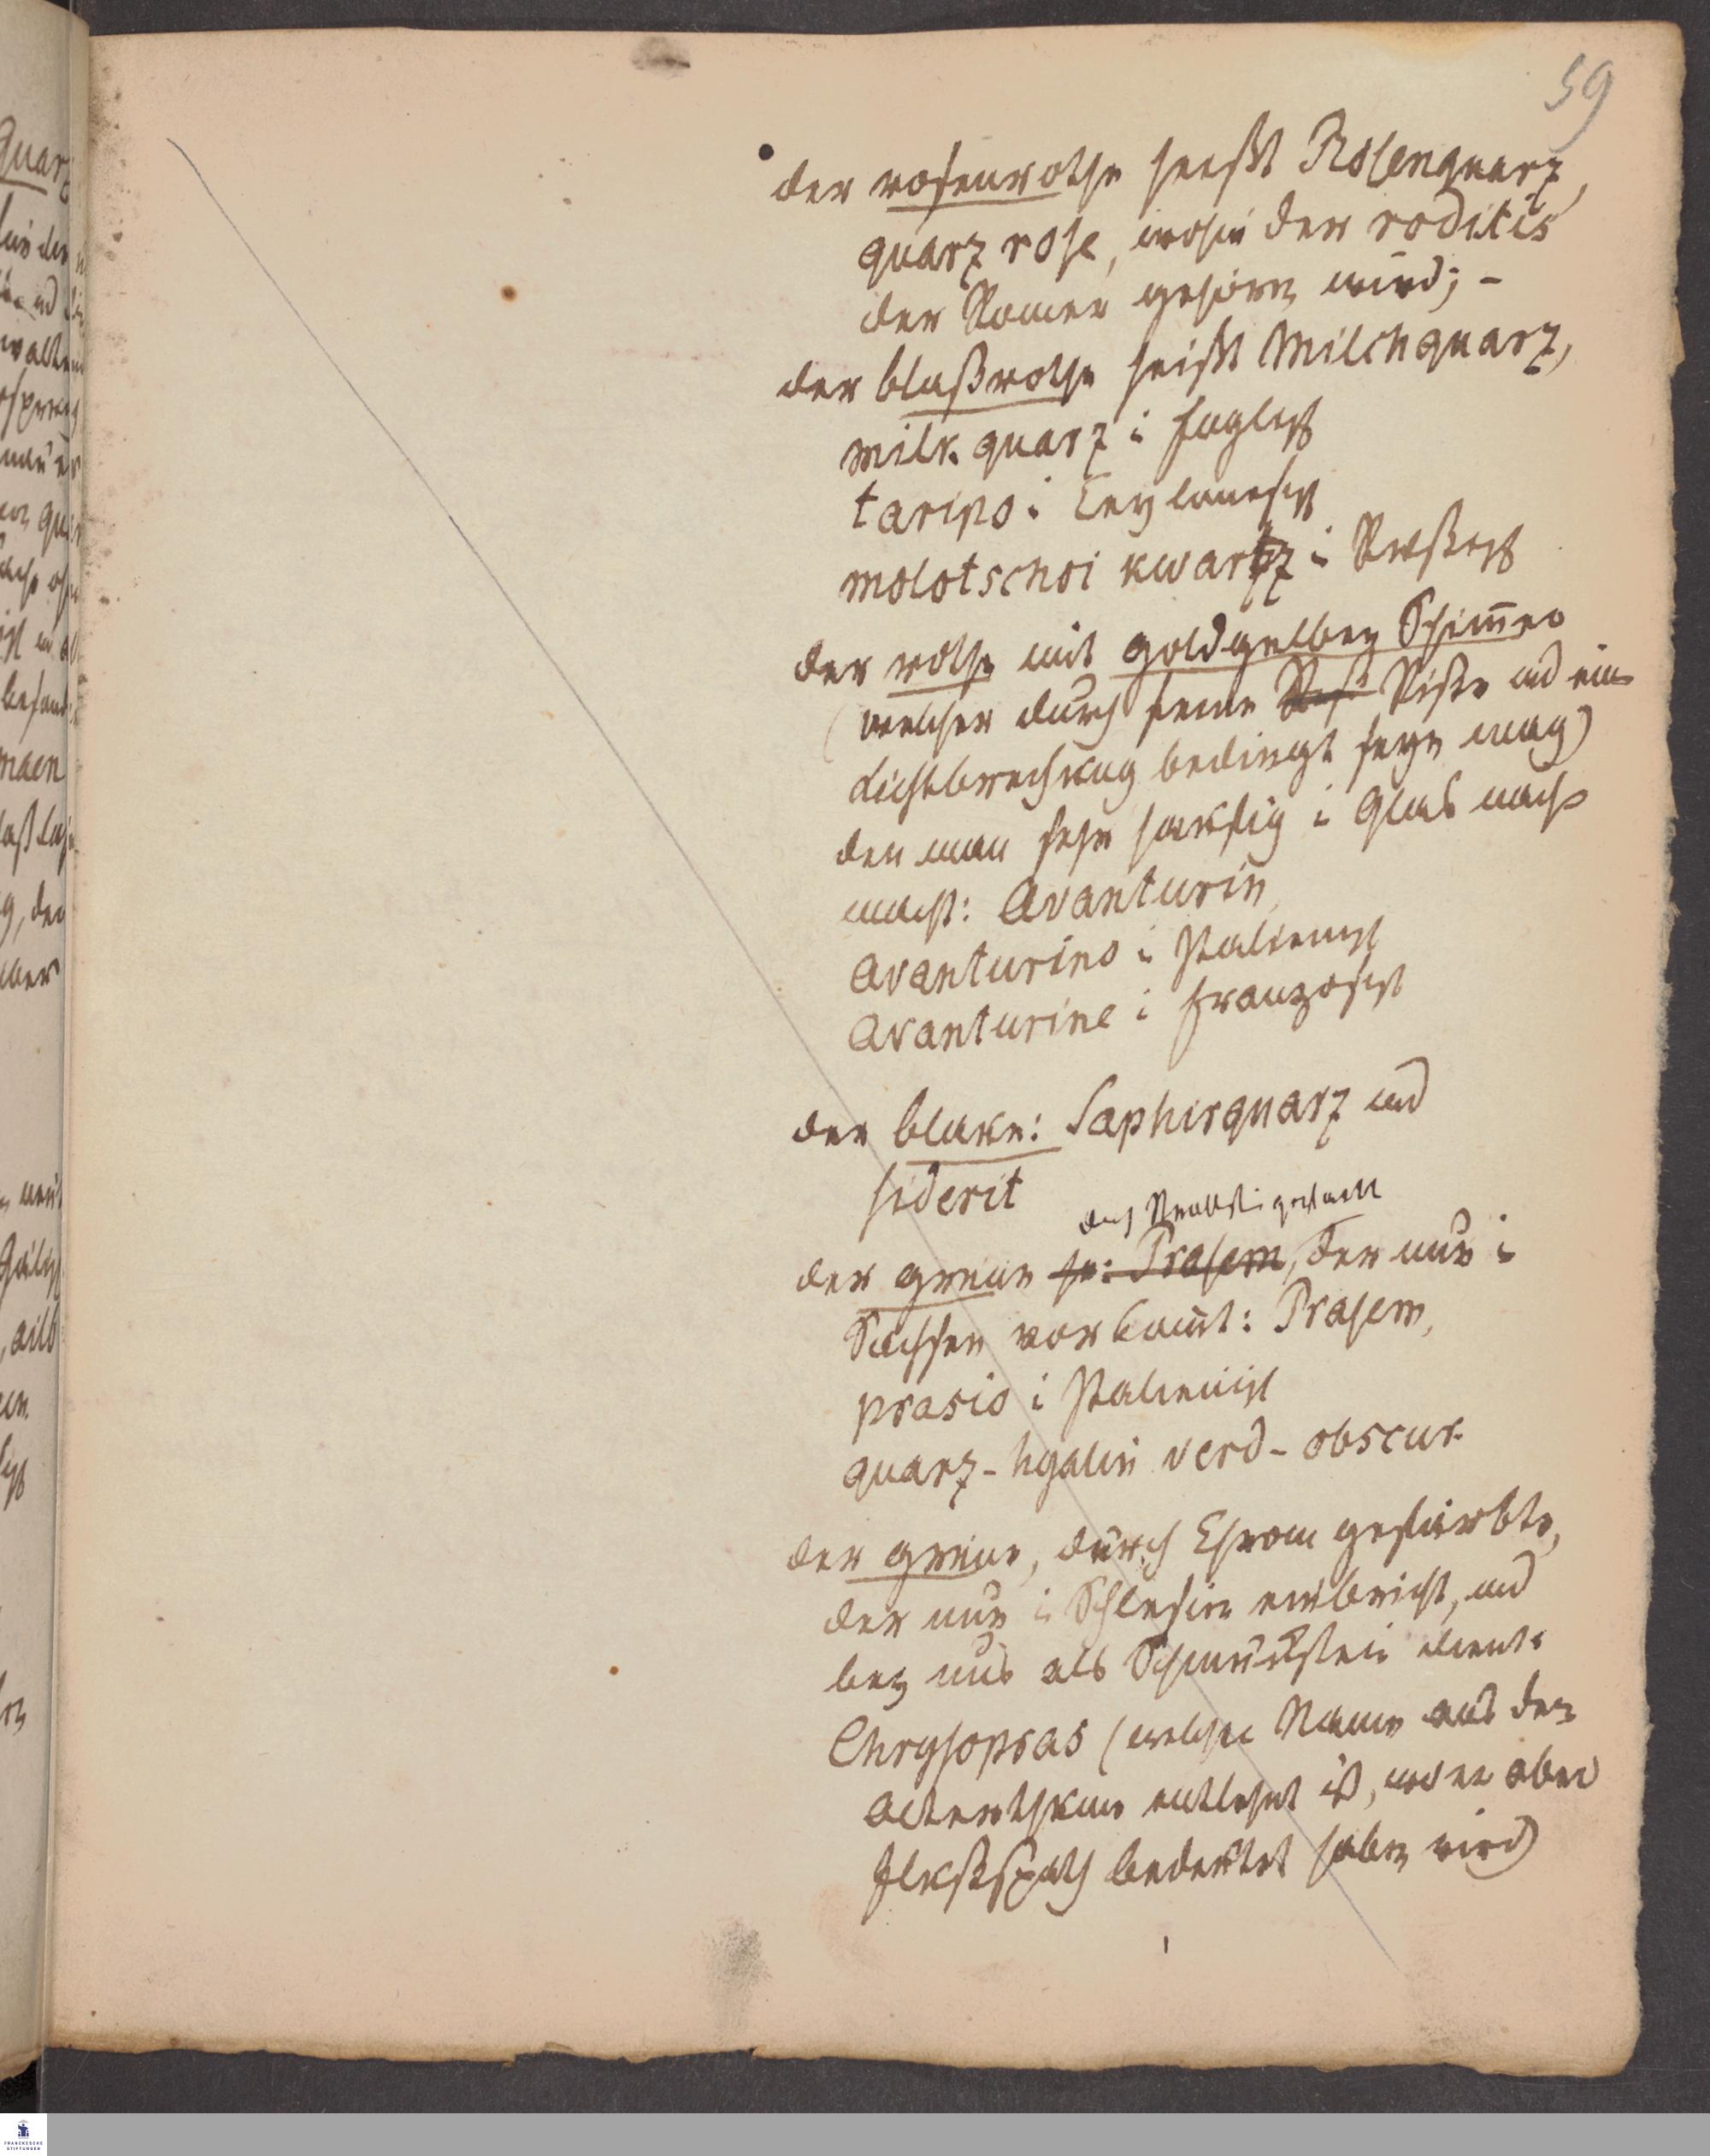 59
der rosenrothe heißt Rosenquarz,
quarz rose, wohin der roditis
der Romer gehören wird; -
der blaßrothe heißt Milchquarz,
milk quarz i Englisch
taripo i Ceylanesisch
molotschoi kwarz i Rußisch
der rothe mit goldgelben Schim̄er
(welcher durch feine Riße und eine
Lichtbrechung bedingt seyn mag)
den man sehr häufig i Glas nach-
macht: Avanturin,
Avanturino i Italienisch
Avanturine i Französisch
der blaue: Saphirquarz und
siderit
durch Strahlstein gefärbt
der grüne he: Prasem, der nur i
Sachsen vorkom̄t: Prasem,
prasio i Italienisch
quarz-hyalin verd-obscur.
der grüne, durch Chrom gefärbte,
der nur i Schlesien einbricht, und
bey uns als Schmuckstein dient:
Chrysopras (welcher Name aus dem
Alterthum entlehnt ist, wo er aber
Flußspath bedeutet haben wird)
FRANCKESCHE
STIFTUNGEN